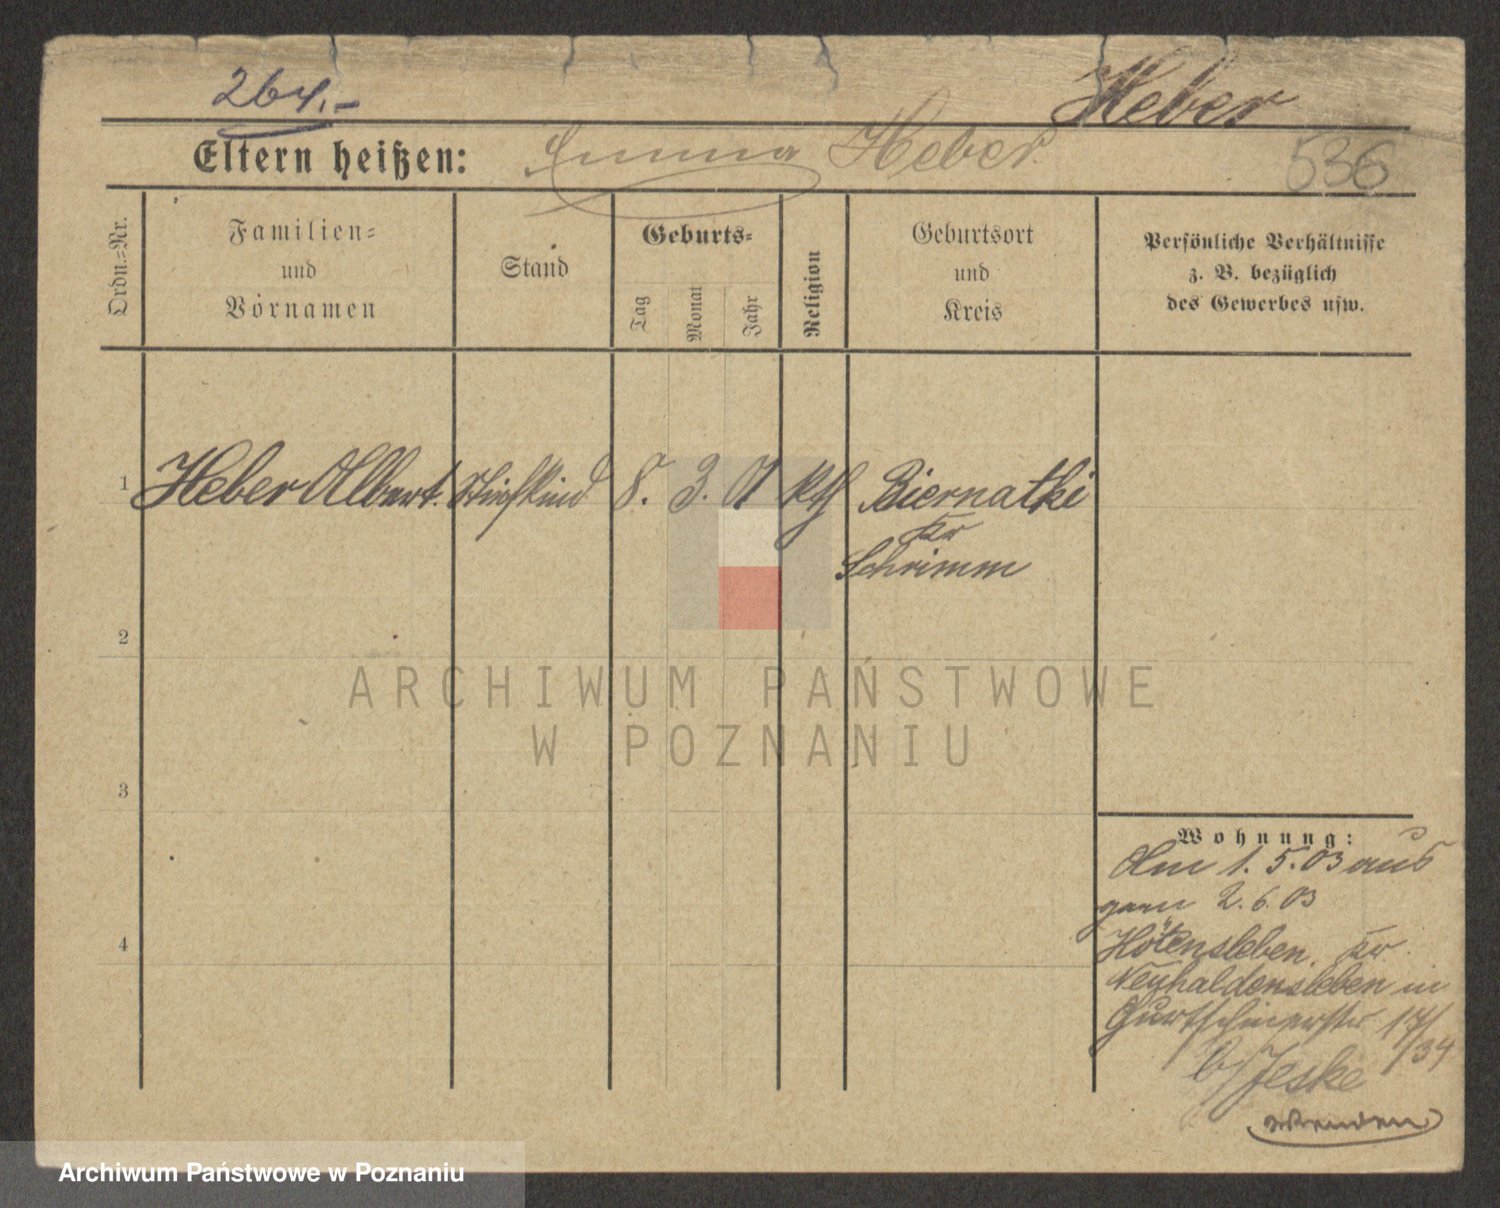 264.-
Heber
Eltern heißen: Emma Heber.
536
Ordn.-Nr.
Familien-
und
Vornamen
Stand
Geburts-
Tag
Monat
Jahr
Religion
Geburtsort
und
Kreis
Persönliche Verhältnisse
z. B. bezüglich
des Gewerbes usw.
1 Heber Albert. Stiefkind 8. 3. 01 kth Biernatki
Kr
Schrimm
2
3
4
ARCHIWUM PAŃSTWOWE
W POZNANIU
Wohnung:
Am 1. 5. 03 aus
2. 6. 03
Hötensleben. Kr.
Neuhaldensleben in
17/
34
b/Jeske
wenden
Archiwum Państwowe w Poznaniu